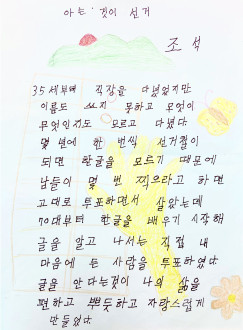 아는 것이 선거
조 석
35세부터 직장을 다녔었지만
이름도 쓰지 못하고 무엇이
무엇인지도 모르고 다녔다
몇 년에 한 번씩 선거철이
되면 한글을 모르기 때문에
남들이 몇 번 찍으라고 하면
고대로 투표하면서 살았는데
70대부터 한글을 배우기 시작해
글을 알고 나서는 직접 내
마음에 든 사람을 투표하였다
글을 안다는것이 나의 삶을
편하고 뿌듯하고 자랑스럽게
만들었다